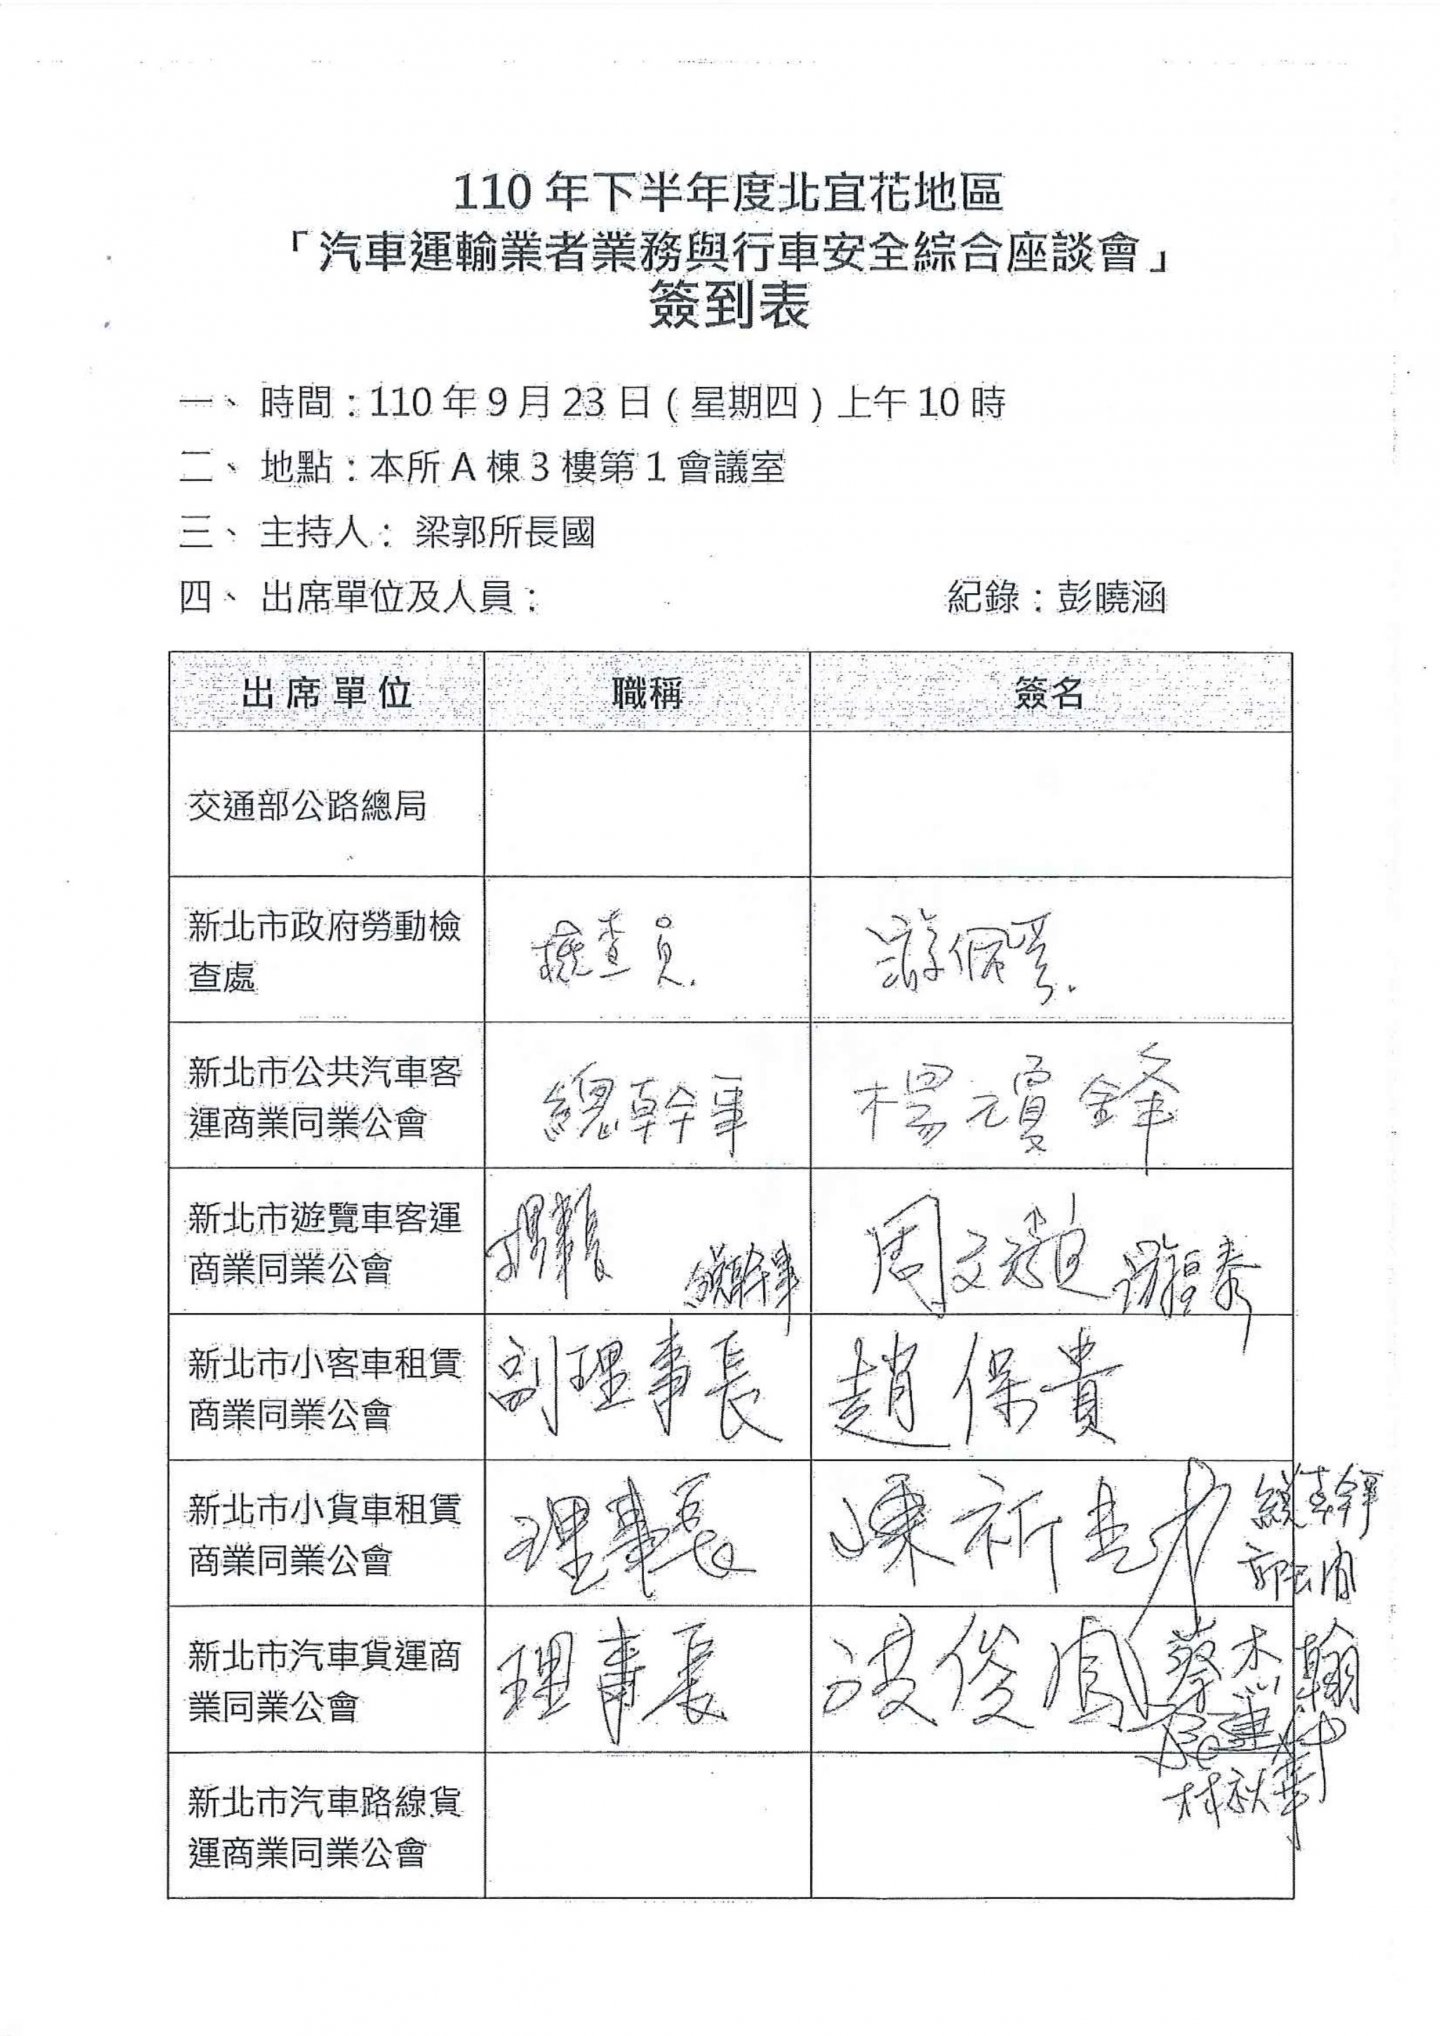 110 年下半年度北宜花地區
「汽車運輸業者業務與行車安全綜合座談會」
簽到表
一、 時間：110 年 9 月 23 日（星期四）上午 10 時
二、 地點：本所 A 棟 3 樓第 1 會議室
三、 主持人： 梁郭所長國
四、 出席單位及人員： 紀錄：彭曉涵
出席單位 職稱 簽名
交通部公路總局
新北市政府勞動檢
查處
檢查員
新北市公共汽車客
運商業同業公會
總幹事
新北市遊覽車客運
商業同業公會
理事長 總幹事 周文
新北市小客車租賃
商業同業公會
副理事長 趙保貴
新北市小貨車租賃
商業同業公會
理事長 陳祈 總幹事
新北市汽車貨運商
業同業公會
理事長 凌俊 蔡
林秋華
新北市汽車路線貨
運商業同業公會